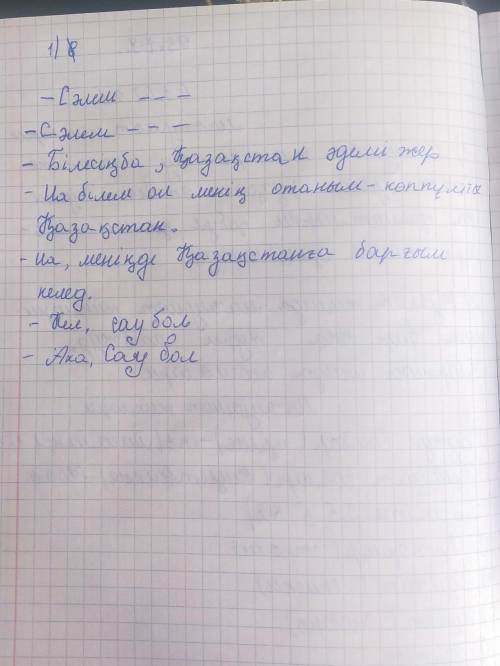 1)
- Сәлем - - -
- Сәлем - - -
- Білесіңба, Қазақстан әдемі жер
- Иа білем ол менің отаным - көпұлты
Қазақстан.
- Иа, меніңде Қазақстанға барғым
келед.
- Кел, сау бол
- Аха, Сау бол